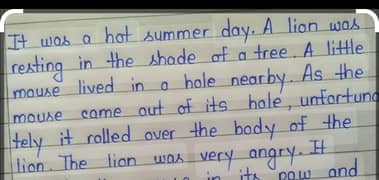 It was a hot summer day. A lion was
resting in the shade of a tree. A little
mouse lived in a hole nearby. As the
mouse came out of its hole, unfortuna
tely it rolled over the body of the
lion. The lion was very angry. It
in its paw and